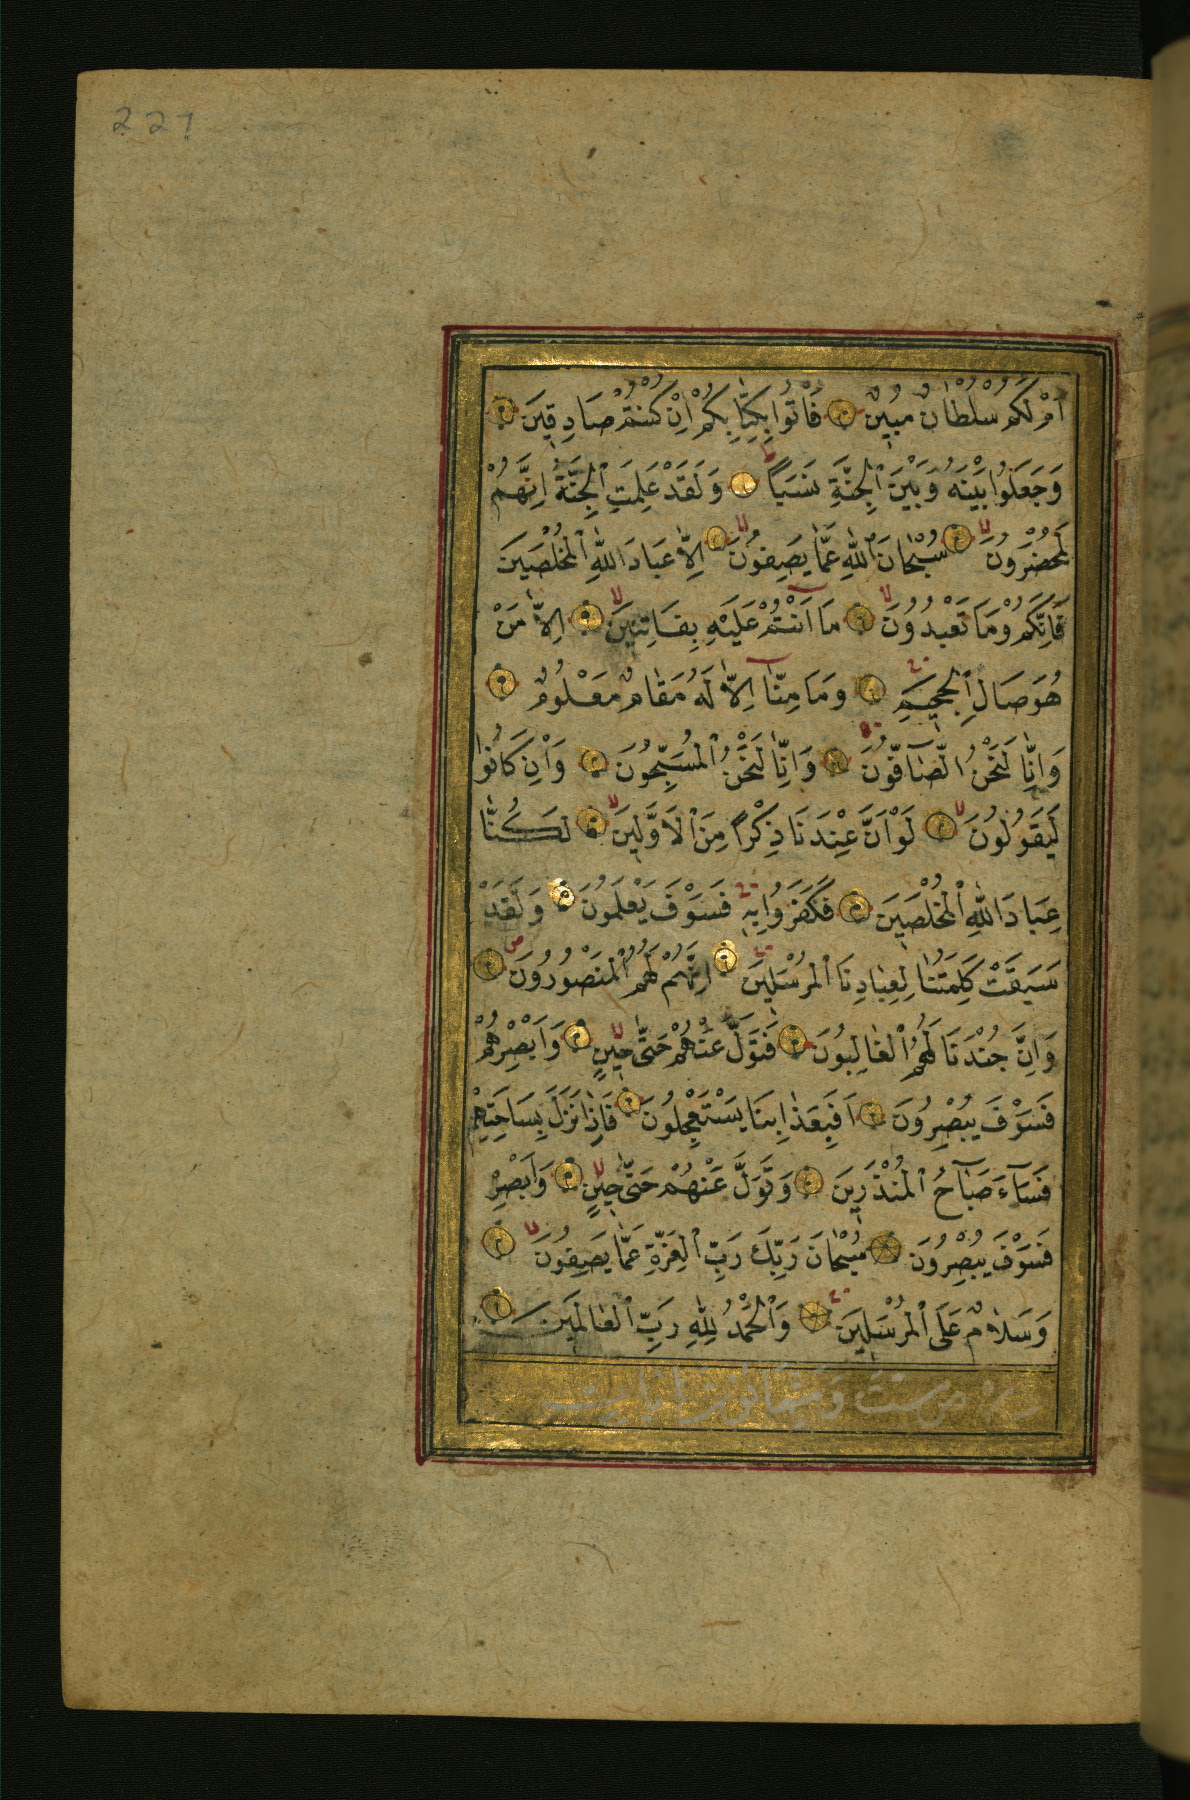 221
اَمْ لَكُمْ سُلْطَانٌ مُبِينٌ فَأْتُوا بِكِتَابِكُمْ اِنْ كُنْتُمْ صَادِقِينَ
وَجَعَلُوا بَيْنَهُ وَبَيْنَ الْجِنَّةِ نَسَبًا وَلَقَدْ عَلِمَتِ الْجِنَّةُ اِنَّهُمْ
لَمُحْضَرُونَ سُبْحَانَ اللّٰهِ عَمَّا يَصِفُونَ اِلَّا عِبَادَ اللّٰهِ الْمُخْلَصِينَ
فَاِنَّكُمْ وَمَا تَعْبُدُونَ مَا اَنْتُمْ عَلَيْهِ بِفَاتِنِينَ اِلَّا مَنْ
هُوَ صَالِ الْجَحِيمِ وَمَا مِنَّا اِلَّا لَهُ مَقَامٌ مَعْلُومٌ
وَاِنَّا لَنَحْنُ الصَّٓافُّونَ وَاِنَّا لَنَحْنُ الْمُسَبِّحُونَ وَاِنْ كَانُوا
لَيَقُولُونَ لَوْ اَنَّ عِنْدَنَا ذِكْرًا مِنَ الْاَوَّلِينَ لَكُنَّا
عِبَادَ اللّٰهِ الْمُخْلَصِينَ فَكَفَرُوا بِهِ فَسَوْفَ يَعْلَمُونَ وَلَقَدْ
سَبَقَتْ كَلِمَتُنَا لِعِبَادِنَا الْمُرْسَلِينَ اِنَّهُمْ لَهُمُ الْمَنْصُورُونَ
وَاِنَّ جُنْدَنَا لَهُمُ الْغَالِبُونَ فَتَوَلَّ عَنْهُمْ حَتّٰى حِينٍ وَاَبْصِرْهُمْ
فَسَوْفَ يُبْصِرُونَ اَفَبِعَذَابِنَا يَسْتَعْجِلُونَ فَاِذَا نَزَلَ بِسَاحَتِهِمْ
فَسَٓاءَ صَبَاحُ الْمُنْذَرِينَ وَتَوَلَّ عَنْهُمْ حَتّٰى حِينٍ وَاَبْصِرْ
فَسَوْفَ يُبْصِرُونَ سُبْحَانَ رَبِّكَ رَبِّ الْعِزَّةِ عَمَّا يَصِفُونَ
وَسَلَامٌ عَلَى الْمُرْسَلِينَ وَالْحَمْدُ لِلّٰهِ رَبِّ الْعَالَمِينَ